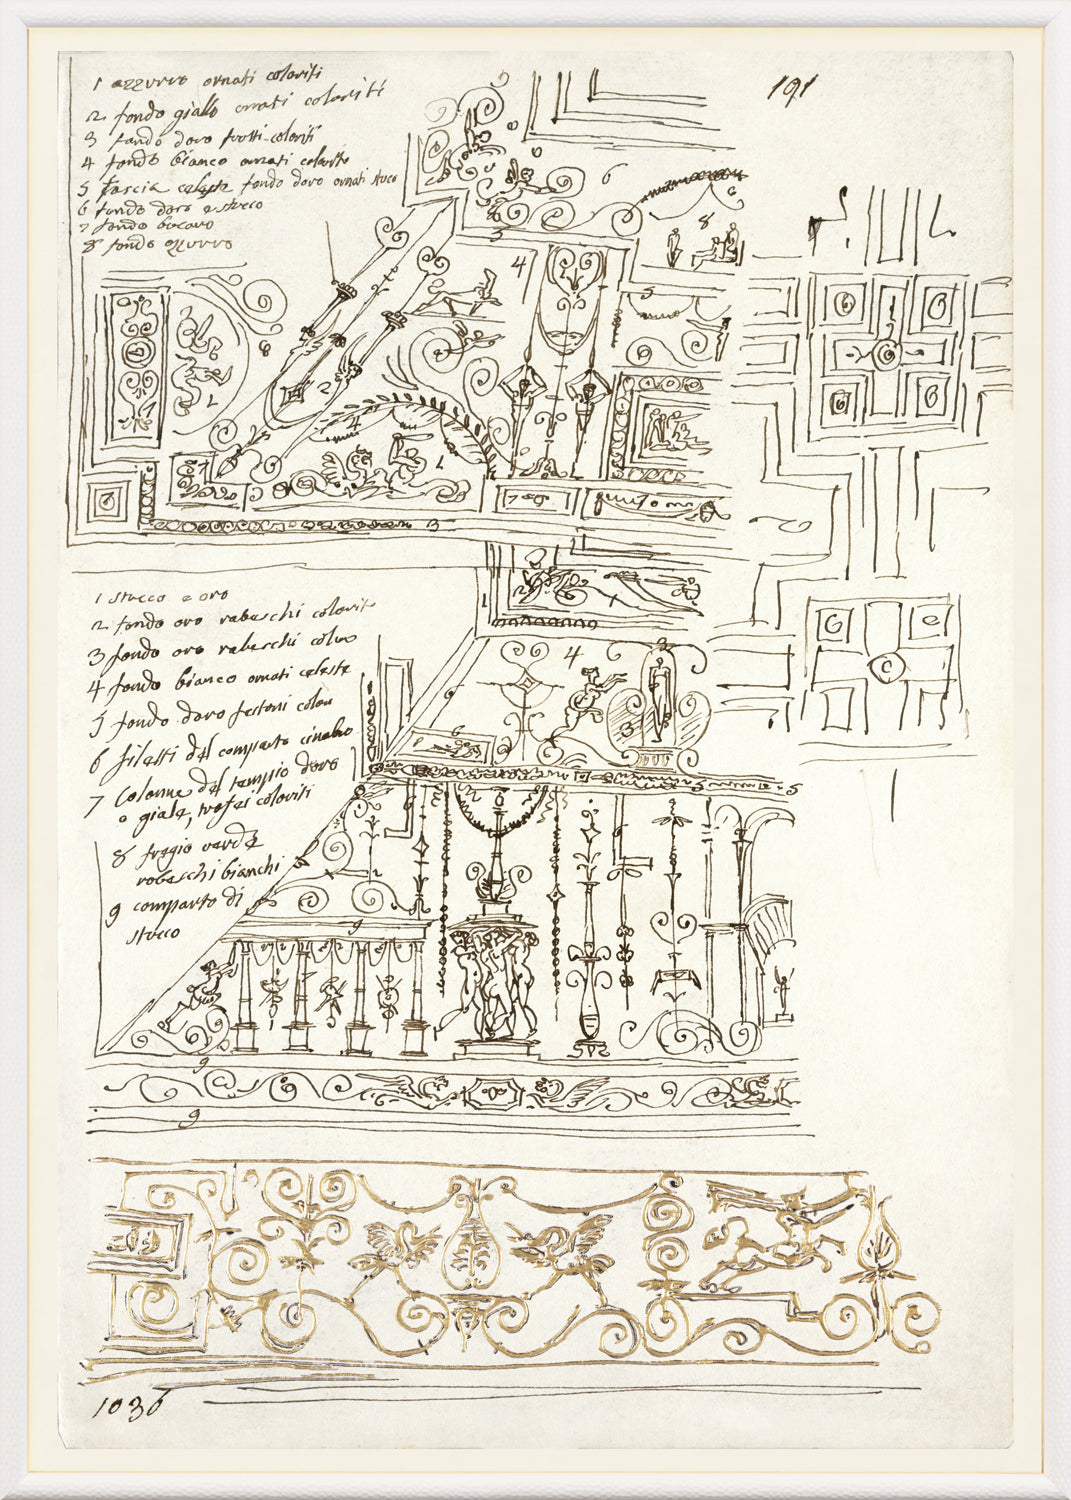 191
1 azzurro ornati coloriti
2 fondo giallo ornati coloriti
3 fondo doro frotti coloriti
4 fondo bianco ornati colorito
5 fascia celeste fondo doro ornati stuco
6 fondo doro e stuco
7 fondo
8 fondo azzurro
6
3
8
4
5
8
1
2
4
1
7
6
3
G
B
C
G
B
1 stucco e oro
2 fondo oro rabeschi colorit
3 fondo oro rabeschi colo
4 fondo bianco ornati celeste
5 fondo doro festoni colou
6 filetti del comparto cinabro
7 Colonne del tempio doro
o giale, trofei coloriti
8 fregio verde
rabeschi bianchi
9 comparto di
stucco
G
e
C
2
4
3
9
6
5
9
9
9
1036